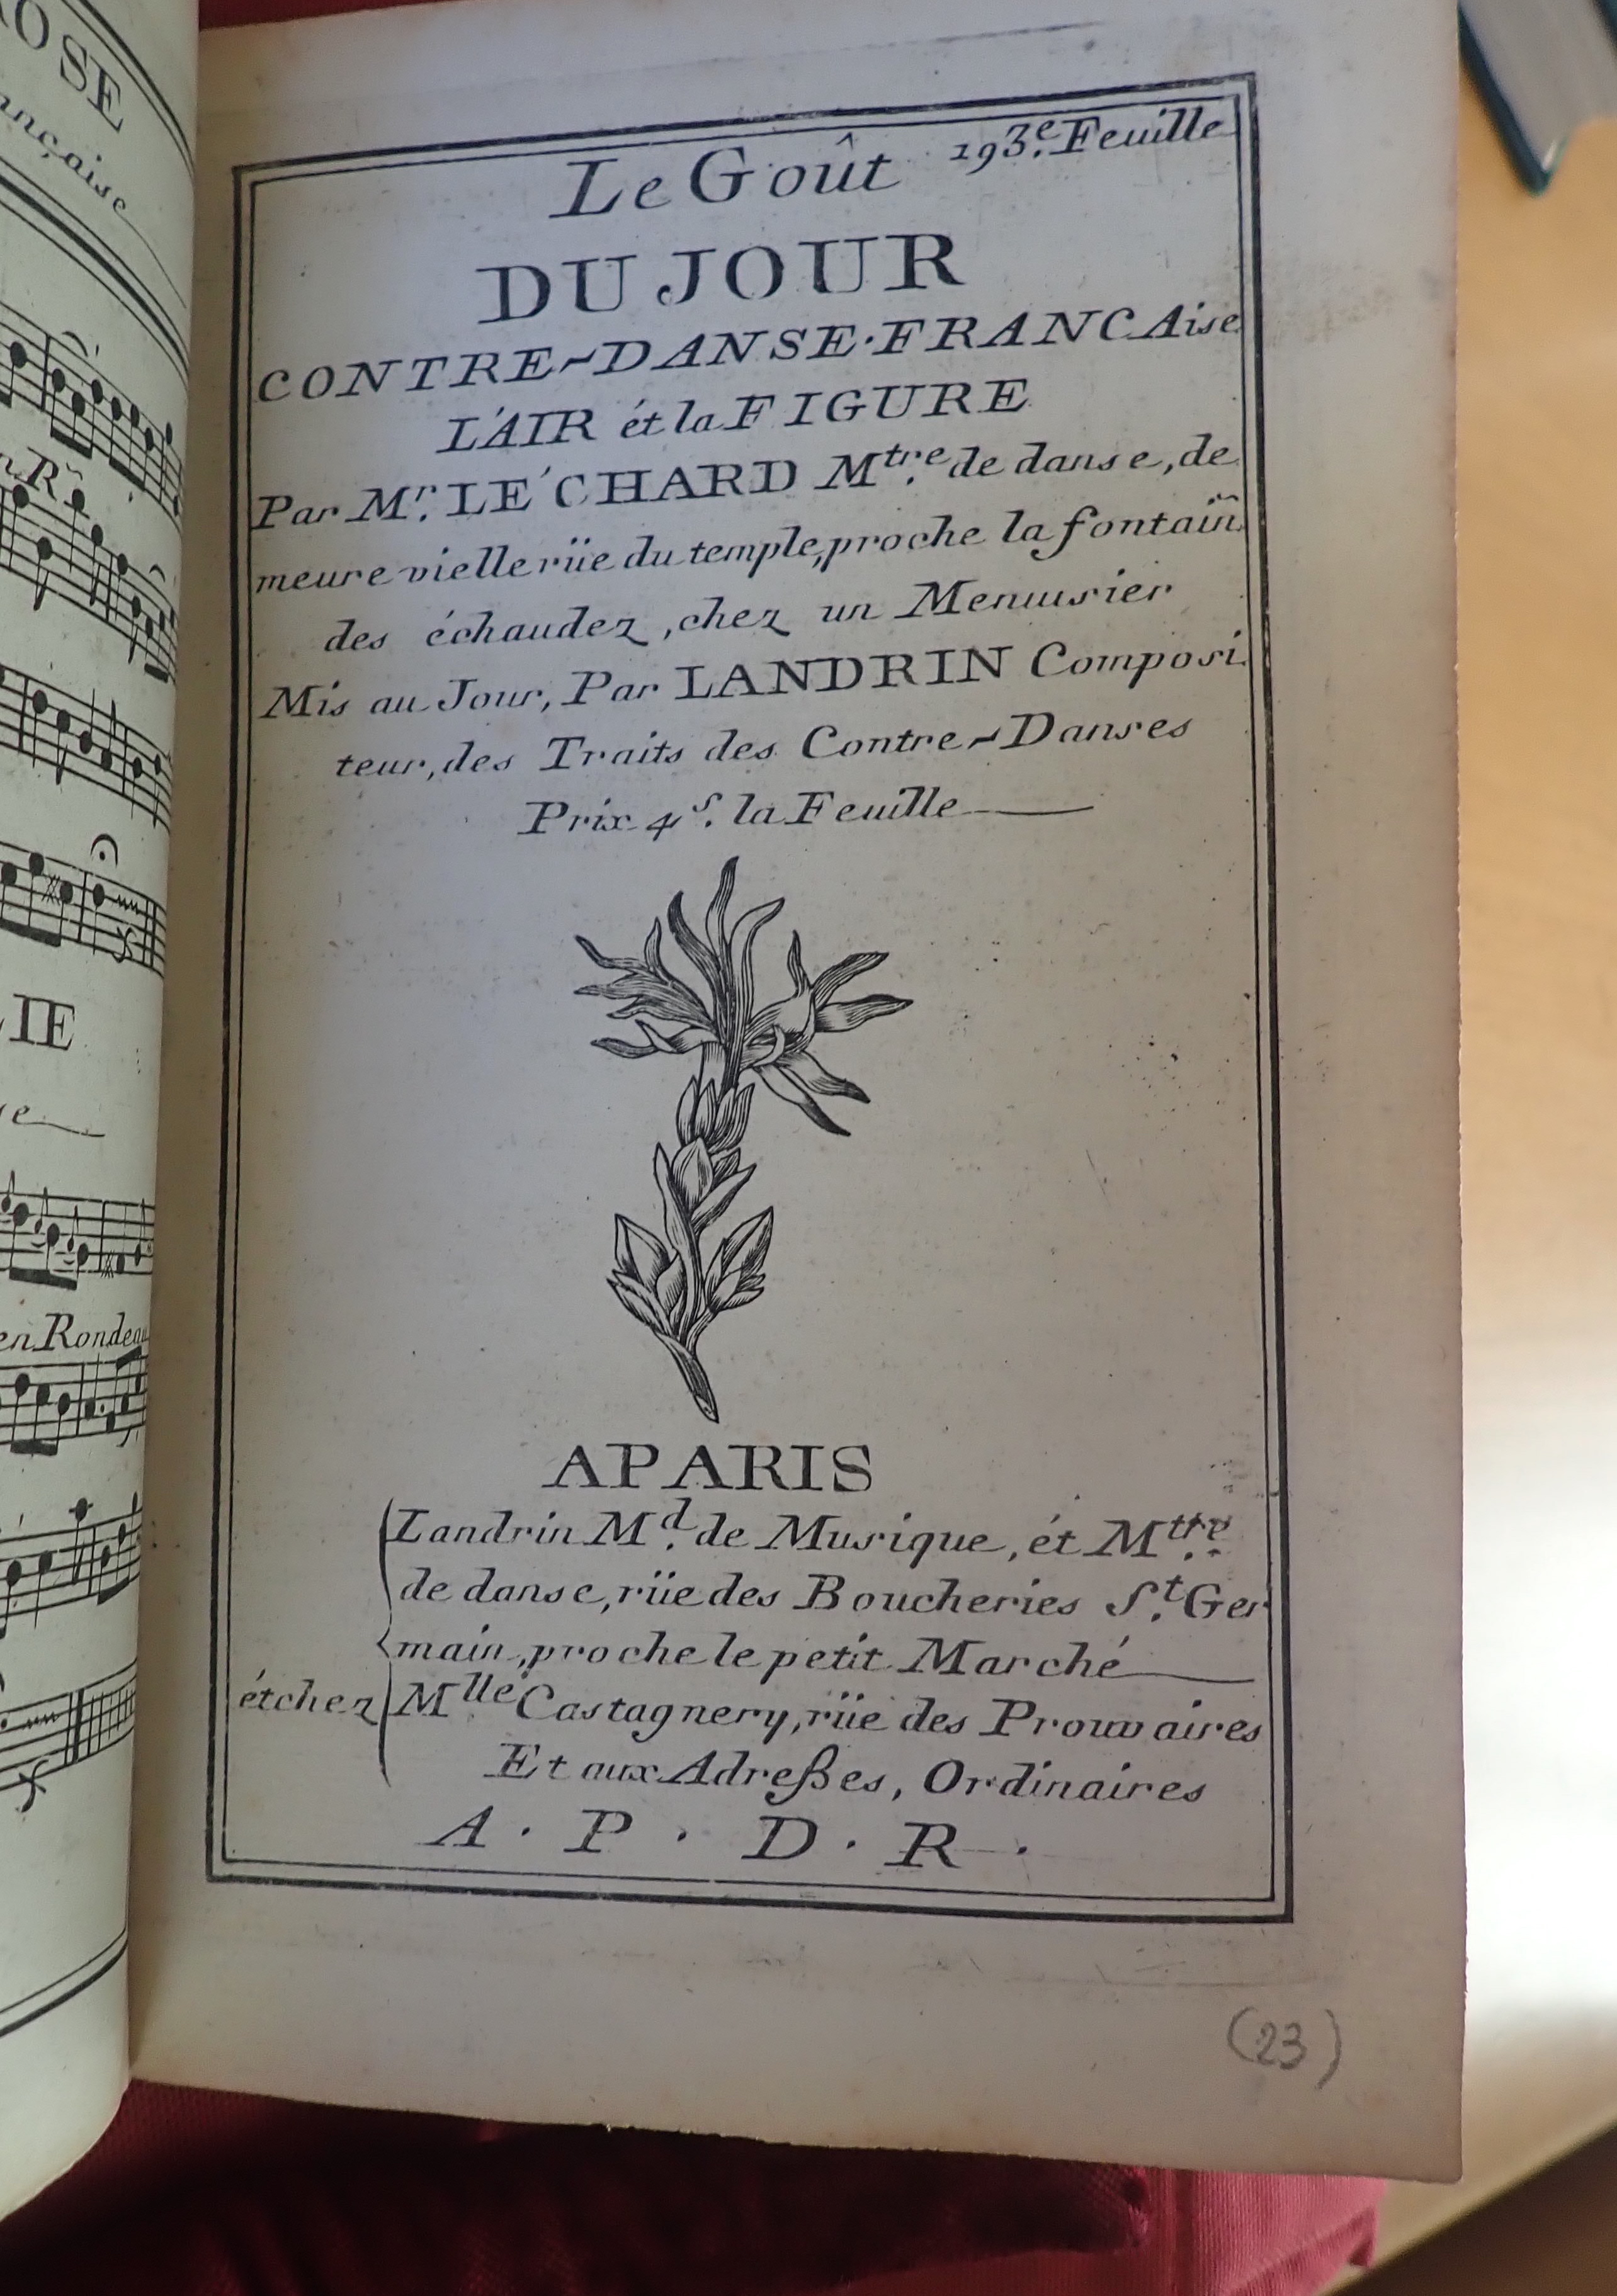 OSE
ançaise
LIE
en Rondeau
193.e Feuille
Le Goût
DU JOUR
CONTRE-DANSE·FRANCAise
L'AIR ét la FIGURE
Par Mr. LÉCHARD Mtre. de danse, de
meure vielle rüe du temple, proche la fontain
des échaudez, chez un Menuisier
Mis au Jour, Par LANDRIN Composi
teur, des Traits des Contre-Danses
Prix 4s. la Feuille
APARIS
Landrin Md. de Musique, ét Mttre.
de danse, rüe des Boucheries St. Ger
main, proche le petit Marché
ét chez Mlle. Castagnery, rüe des Prouvaires
Et aux Adreßes, Ordinaires
A · P · D · R ·
(23)